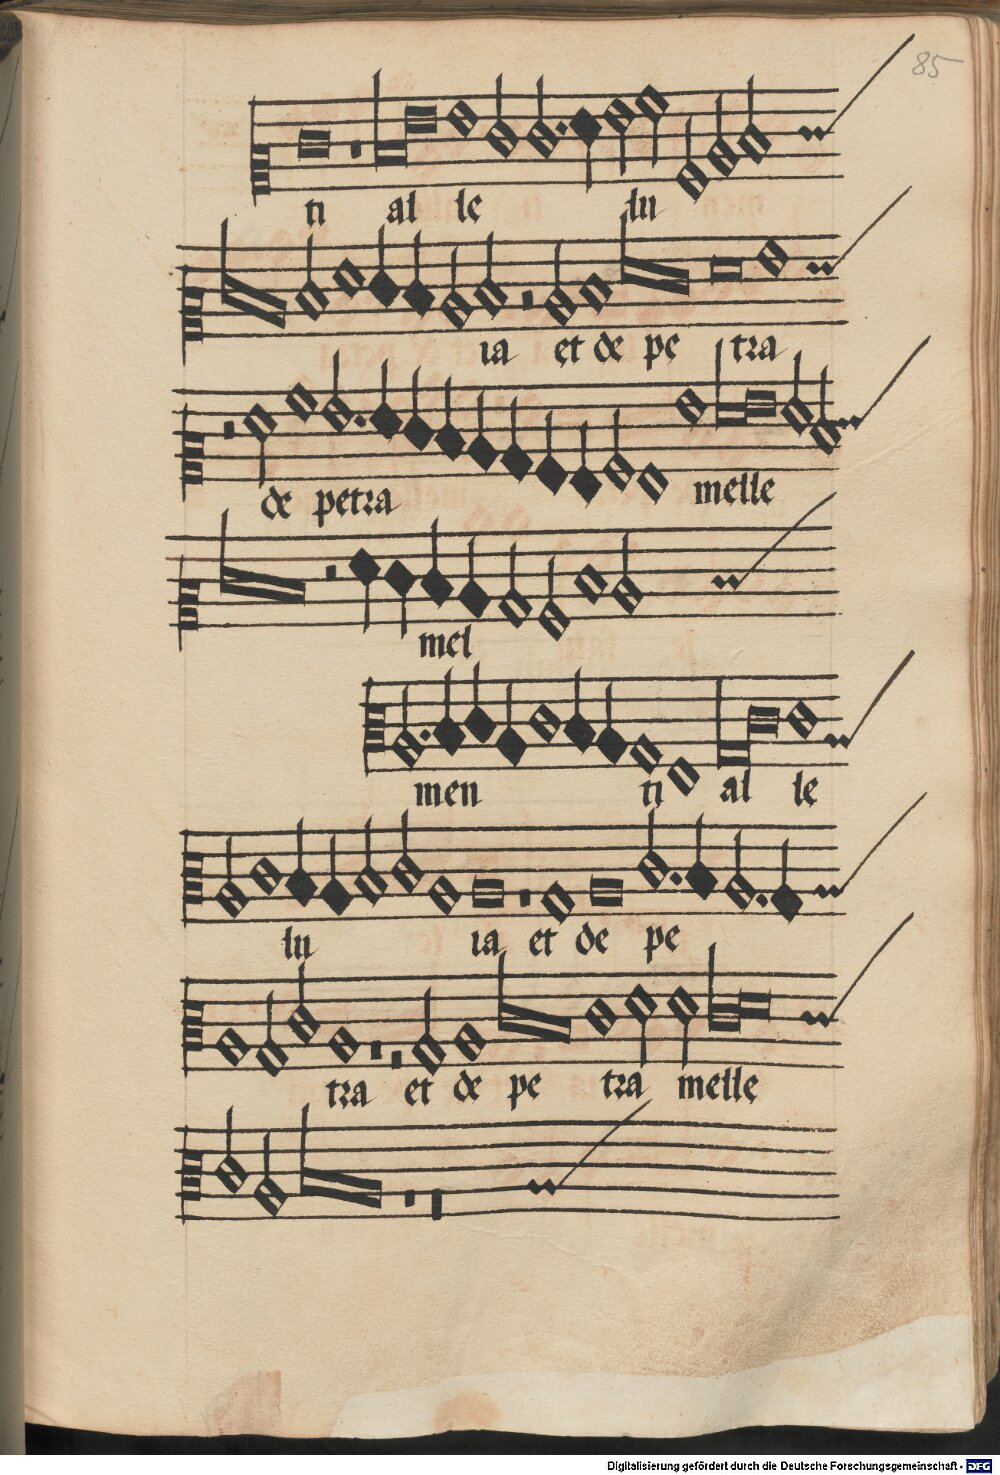 85
ti al le lu
ia et de pe tra
de petra melle
mel
men ti al le
lu ia et de pe
tra et de pe tra melle
Digitalisierung gefördert durch die Deutsche Forschungsgemeinschaft - DFG